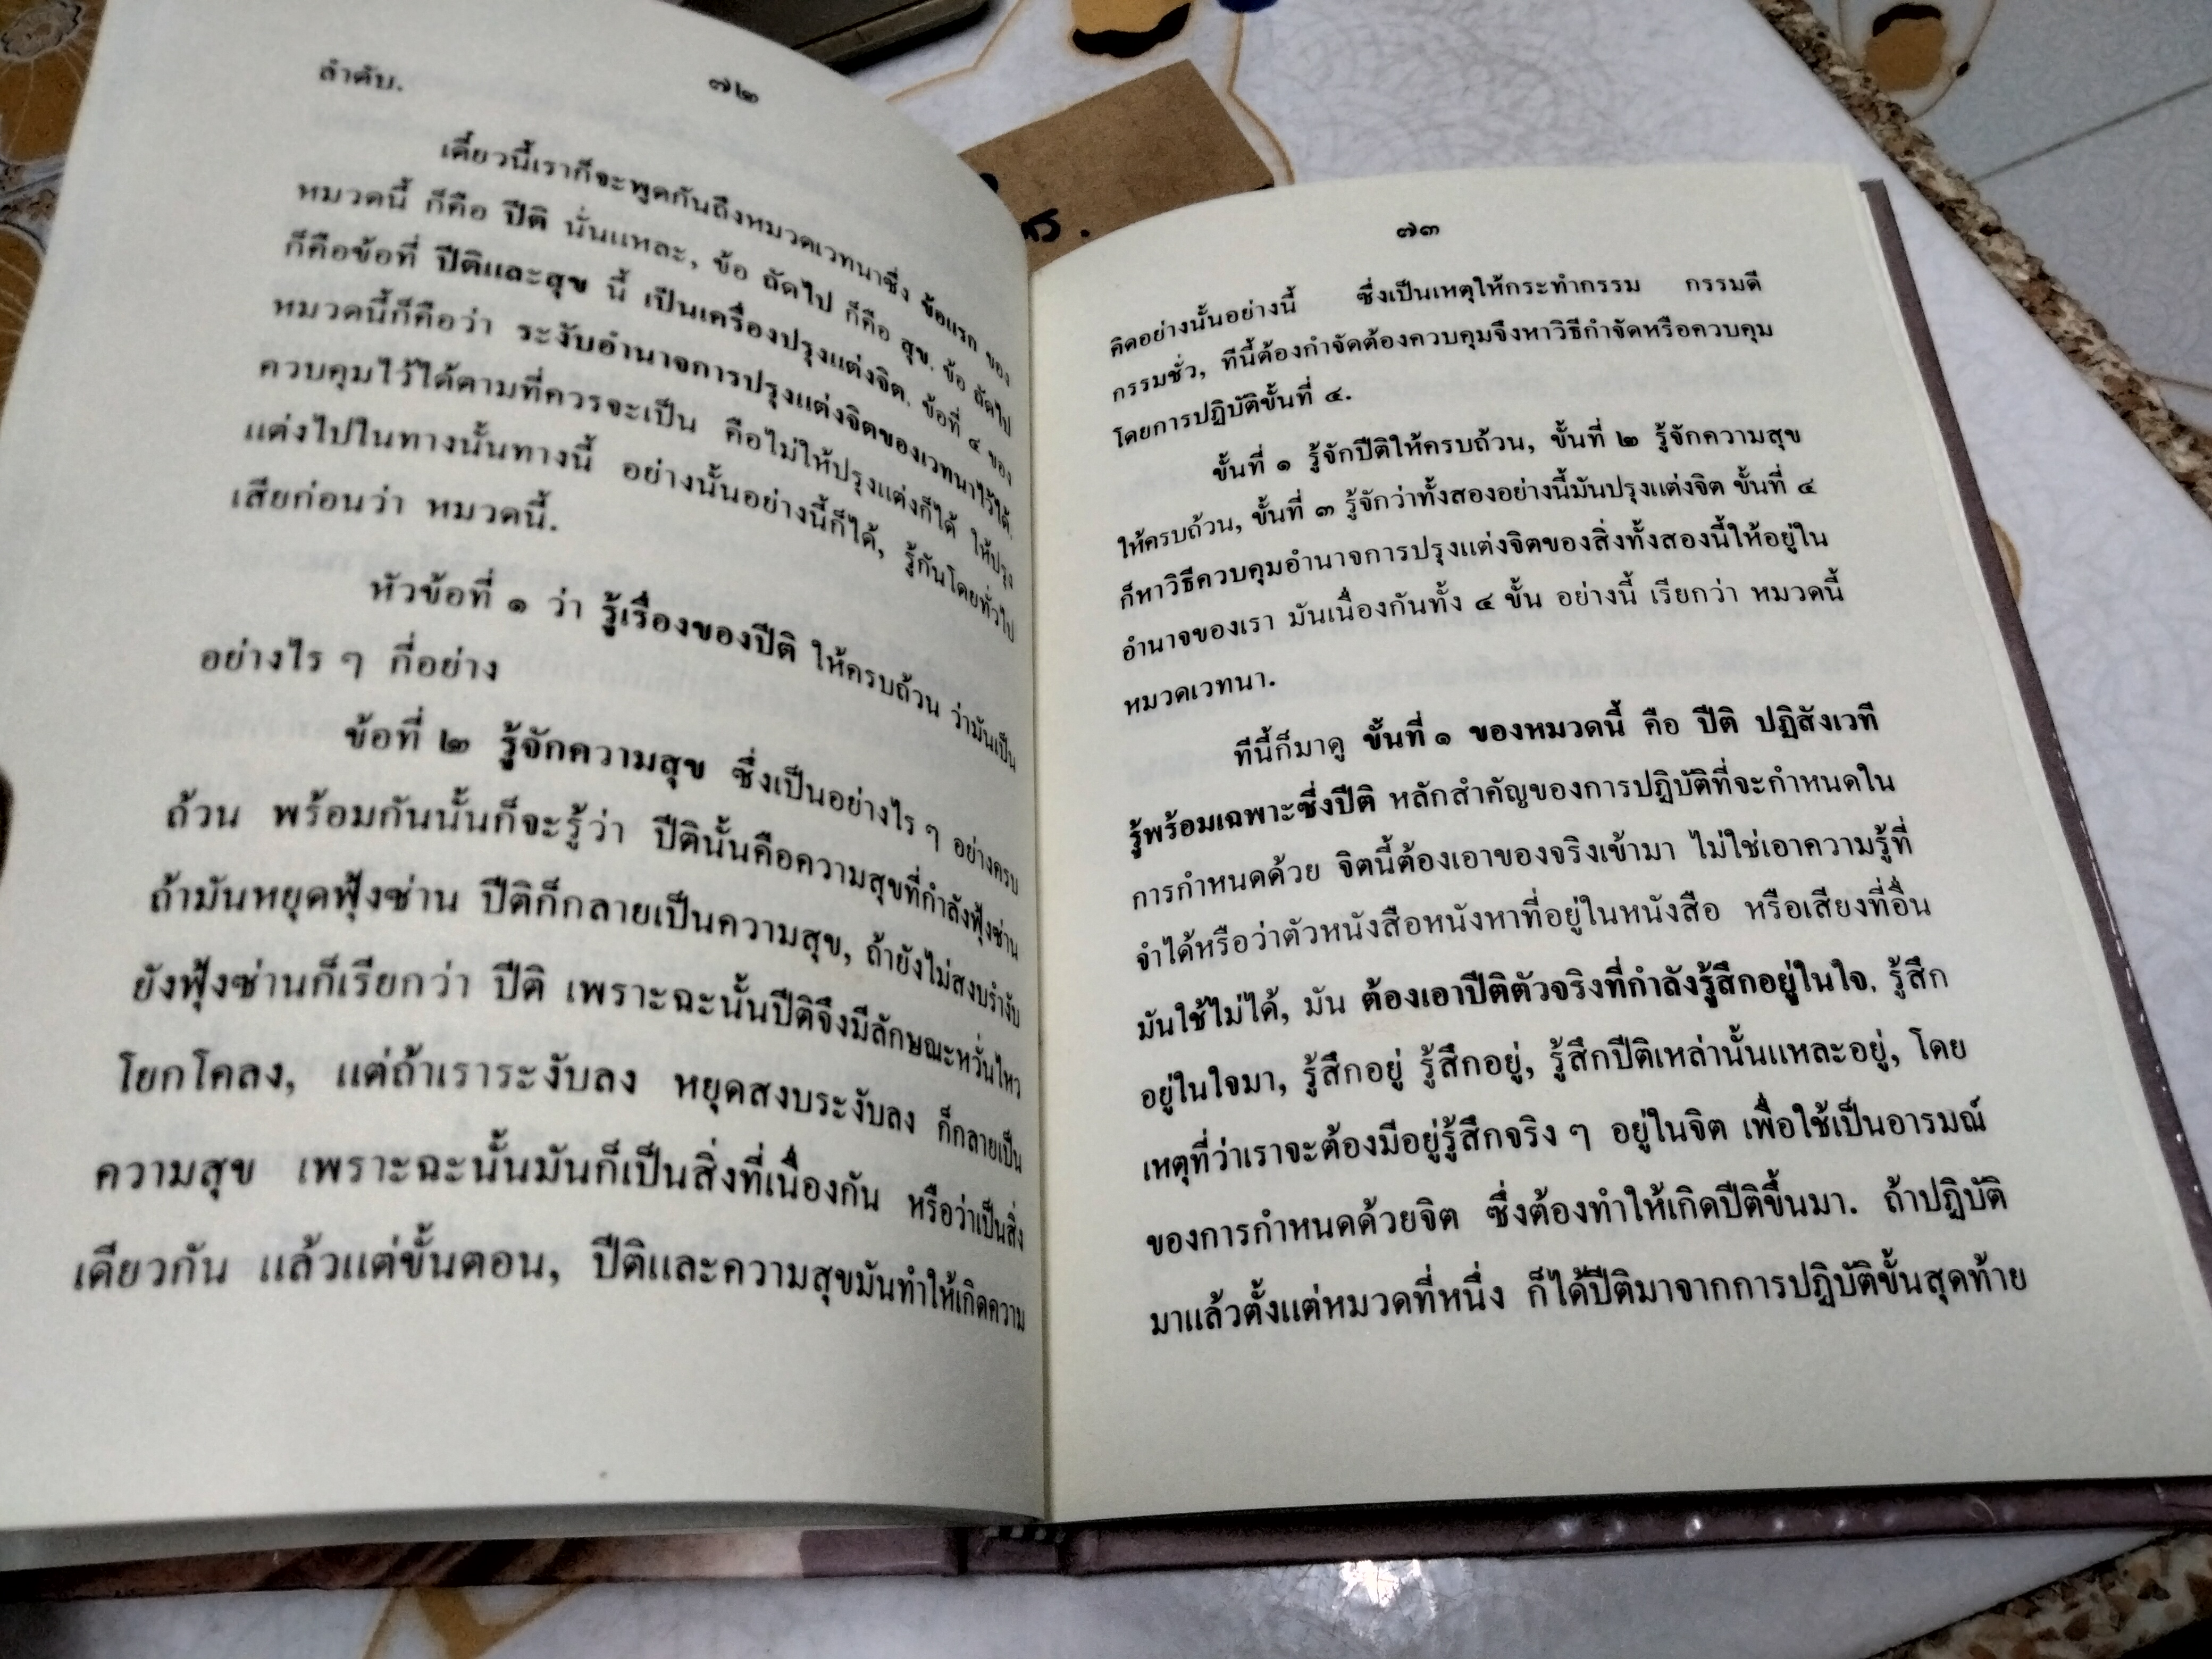 ๗๒
ลำดับ.
เดี๋ยวนี้เราก็จะพูดกันถึงหมวดเวทนาซึ่ง ข้อแรก ของ
หมวดนี้ ก็คือ ปีติ นั่นแหละ, ข้อ ถัดไป ก็คือ สุข. ข้อ ถัดไป
ก็คือข้อที่ ปีติและสุข นี้ เป็นเครื่องปรุงแต่งจิต. ข้อที่ ๔ ของ
หมวดนี้ก็คือว่า ระงับอำนาจการปรุงแต่งจิตของเวทนาไว้ได้.
ควบคุมไว้ได้ตามที่ควรจะเป็น คือไม่ให้ปรุงแต่งก็ได้ ให้ปรุง
แต่งไปในทางนั้นทางนี้ อย่างนั้นอย่างนี้ก็ได้, รู้กันโดยทั่วไป
เสียก่อนว่า หมวดนี้.
หัวข้อที่ ๑ ว่า รู้เรื่องของปีติ ให้ครบถ้วน ว่ามันเป็น
อย่างไร ๆ กี่อย่าง
ข้อที่ ๒ รู้จักความสุข ซึ่งเป็นอย่างไร ๆ อย่างครบ
ถ้วน พร้อมกันนั้นก็จะรู้ว่า ปีตินั้นคือความสุขที่กำลังฟุ้งซ่าน
ถ้ามันหยุดฟุ้งซ่าน ปีติก็กลายเป็นความสุข, ถ้ายังไม่สงบรำงับ
ยังฟุ้งซ่านก็เรียกว่า ปีติ เพราะฉะนั้นปีติจึงมีลักษณะหวั่นไหว
โยกโคลง, แต่ถ้าเราระงับลง หยุดสงบระงับลง ก็กลายเป็น
ความสุข เพราะฉะนั้นมันก็เป็นสิ่งที่เนื่องกัน หรือว่าเป็นสิ่ง
เดียวกัน แล้วแต่ขั้นตอน, ปีติและความสุขมันทำให้เกิดความ
๗๓
คิดอย่างนั้นอย่างนี้ ซึ่งเป็นเหตุให้กระทำกรรม กรรมดี
กรรมชั่ว, ทีนี้ต้องกำจัดต้องควบคุมจึงหาวิธีกำจัดหรือควบคุม
โดยการปฏิบัติขั้นที่ ๔.
ขั้นที่ ๑ รู้จักปีติให้ครบถ้วน, ขั้นที่ ๒ รู้จักความสุข
ให้ครบถ้วน, ขั้นที่ ๓ รู้จักว่าทั้งสองอย่างนี้มันปรุงแต่งจิต ขั้นที่ ๔
ก็หาวิธีควบคุมอำนาจการปรุงแต่งจิตของสิ่งทั้งสองนี้ให้อยู่ใน
อำนาจของเรา มันเนื่องกันทั้ง ๔ ขั้น อย่างนี้ เรียกว่า หมวดนี้
หมวดเวทนา.
ทีนี้ก็มาดู ขั้นที่ ๑ ของหมวดนี้ คือ ปีติ ปฏิสังเวที
รู้พร้อมเฉพาะซึ่งปีติ หลักสำคัญของการปฏิบัติที่จะกำหนดใน
การกำหนดด้วย จิตนี้ต้องเอาของจริงเข้ามา ไม่ใช่เอาความรู้ที่
จำได้หรือว่าตัวหนังสือหนังหาที่อยู่ในหนังสือ หรือเสียงที่อื่น
มันใช้ไม่ได้, มัน ต้องเอาปีติตัวจริงที่กำลังรู้สึกอยู่ในใจ. รู้สึก
อยู่ในใจมา, รู้สึกอยู่ รู้สึกอยู่, รู้สึกปีติเหล่านั้นแหละอยู่, โดย
เหตุที่ว่าเราจะต้องมีอยู่รู้สึกจริง ๆ อยู่ในจิต เพื่อใช้เป็นอารมณ์
ของการกำหนดด้วยจิต ซึ่งต้องทำให้เกิดปีติขึ้นมา. ถ้าปฏิบัติ
มาแล้วตั้งแต่หมวดที่หนึ่ง ก็ได้ปีติมาจากการปฏิบัติขั้นสุดท้าย